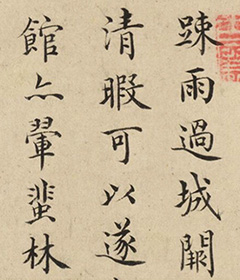 踈雨過城闕
清暇可以遂
館亦翬蜚林